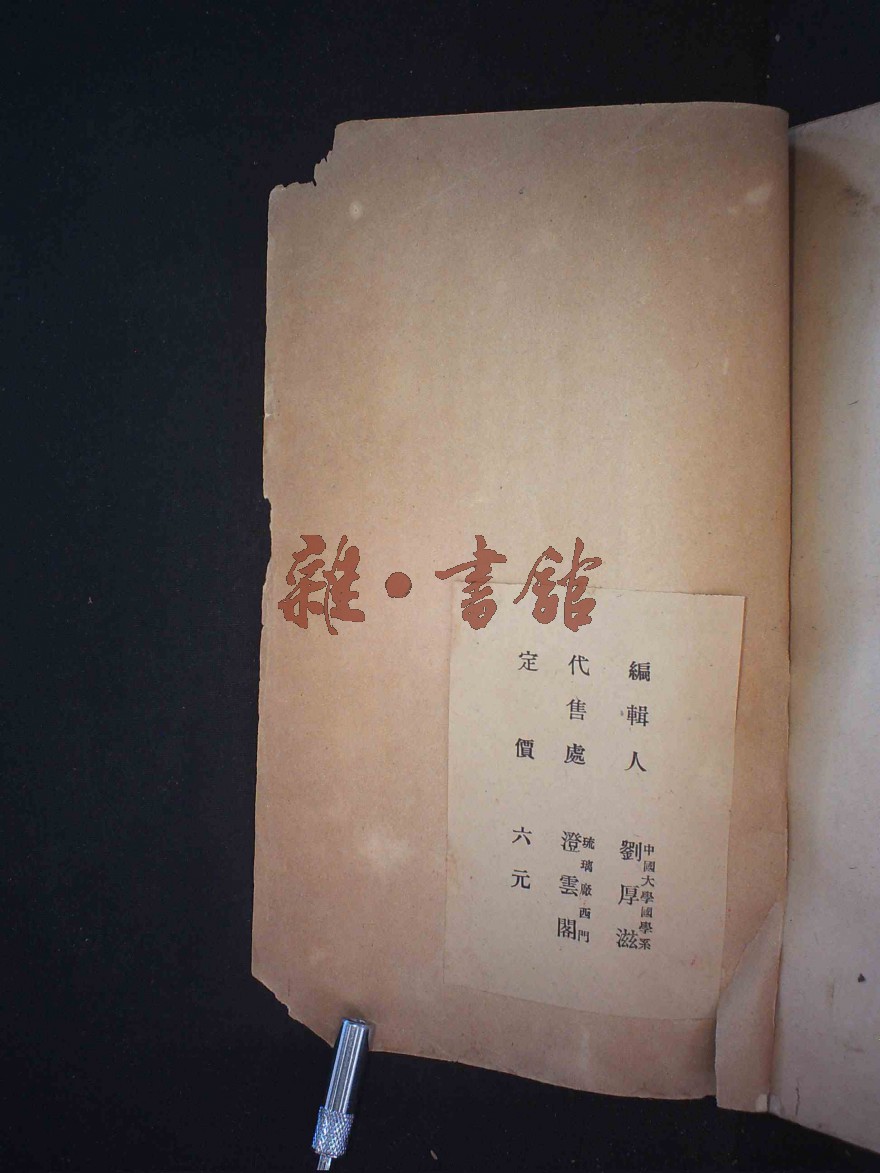 雜·書館
編輯人 中國大學國學系 劉厚滋
代售處 琉璃廠西門 澄雲閣
定價 六元